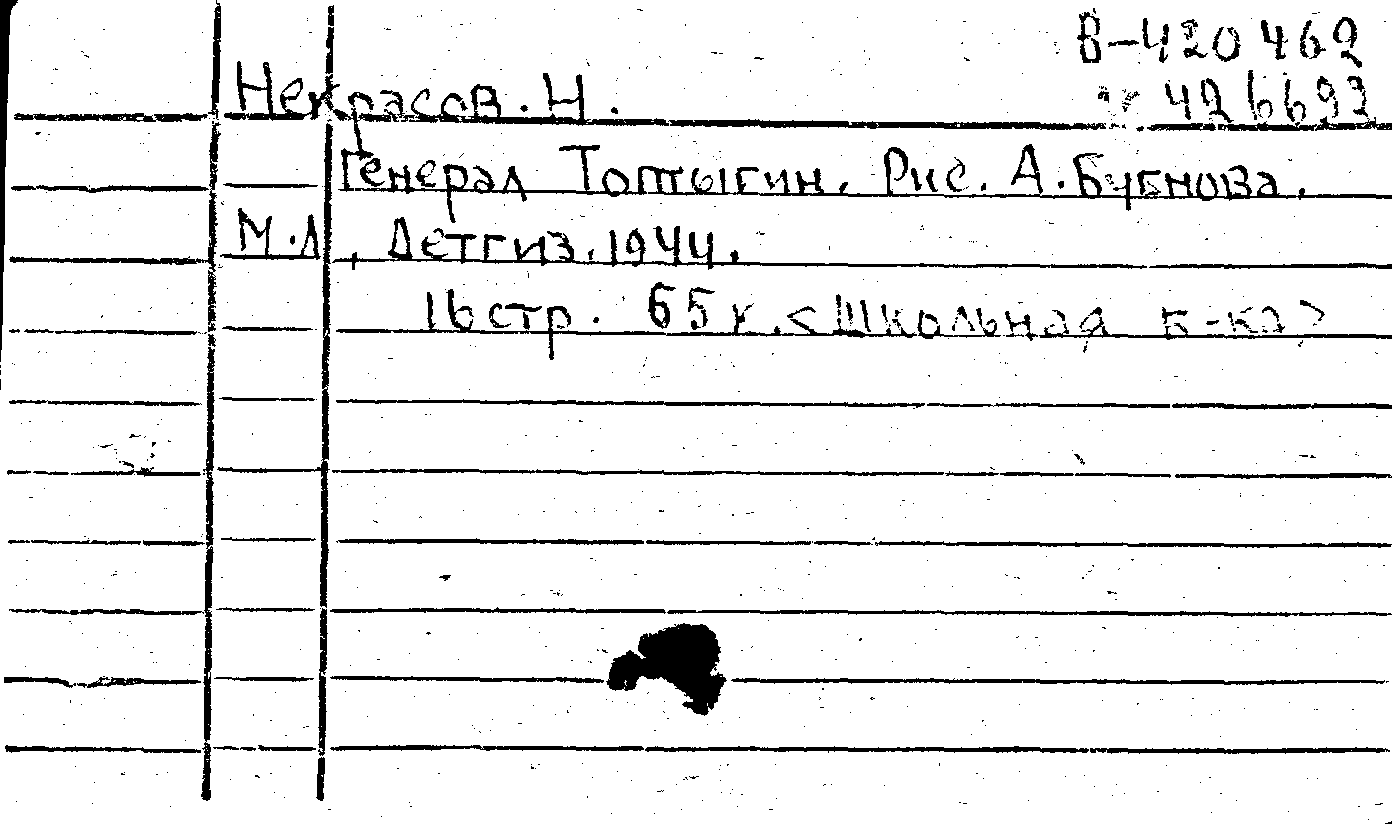 В-420 462
426693
Некрасов. Н.
Генерал Топтыгин. Рис. А. Бубнова.
М.Л., Детгиз. 1944.
16 стр. 65 к. <Школьная б-ка>